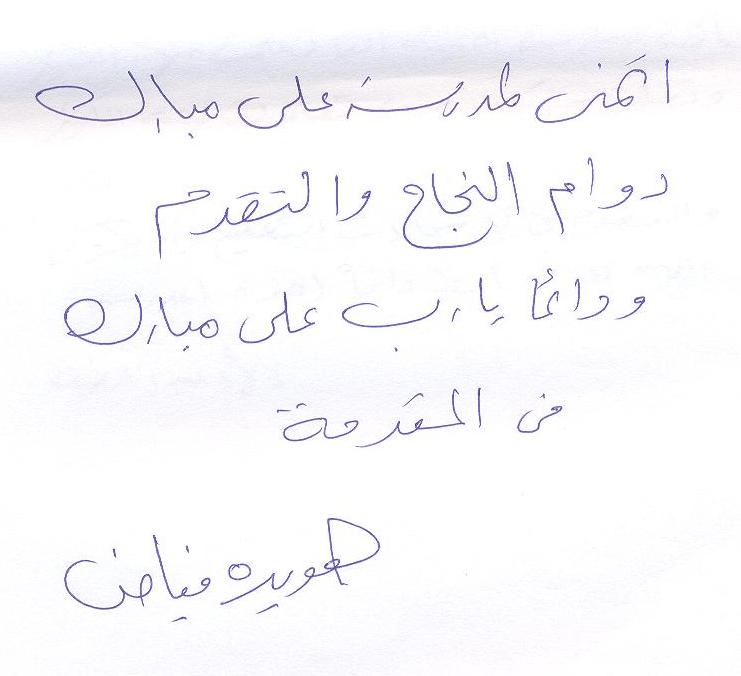 اتمنى لمدرسة على مبارك
دوام النجاح والتقدم
ودائما يارب على مبارك
فى المقدمة
هويده فياض